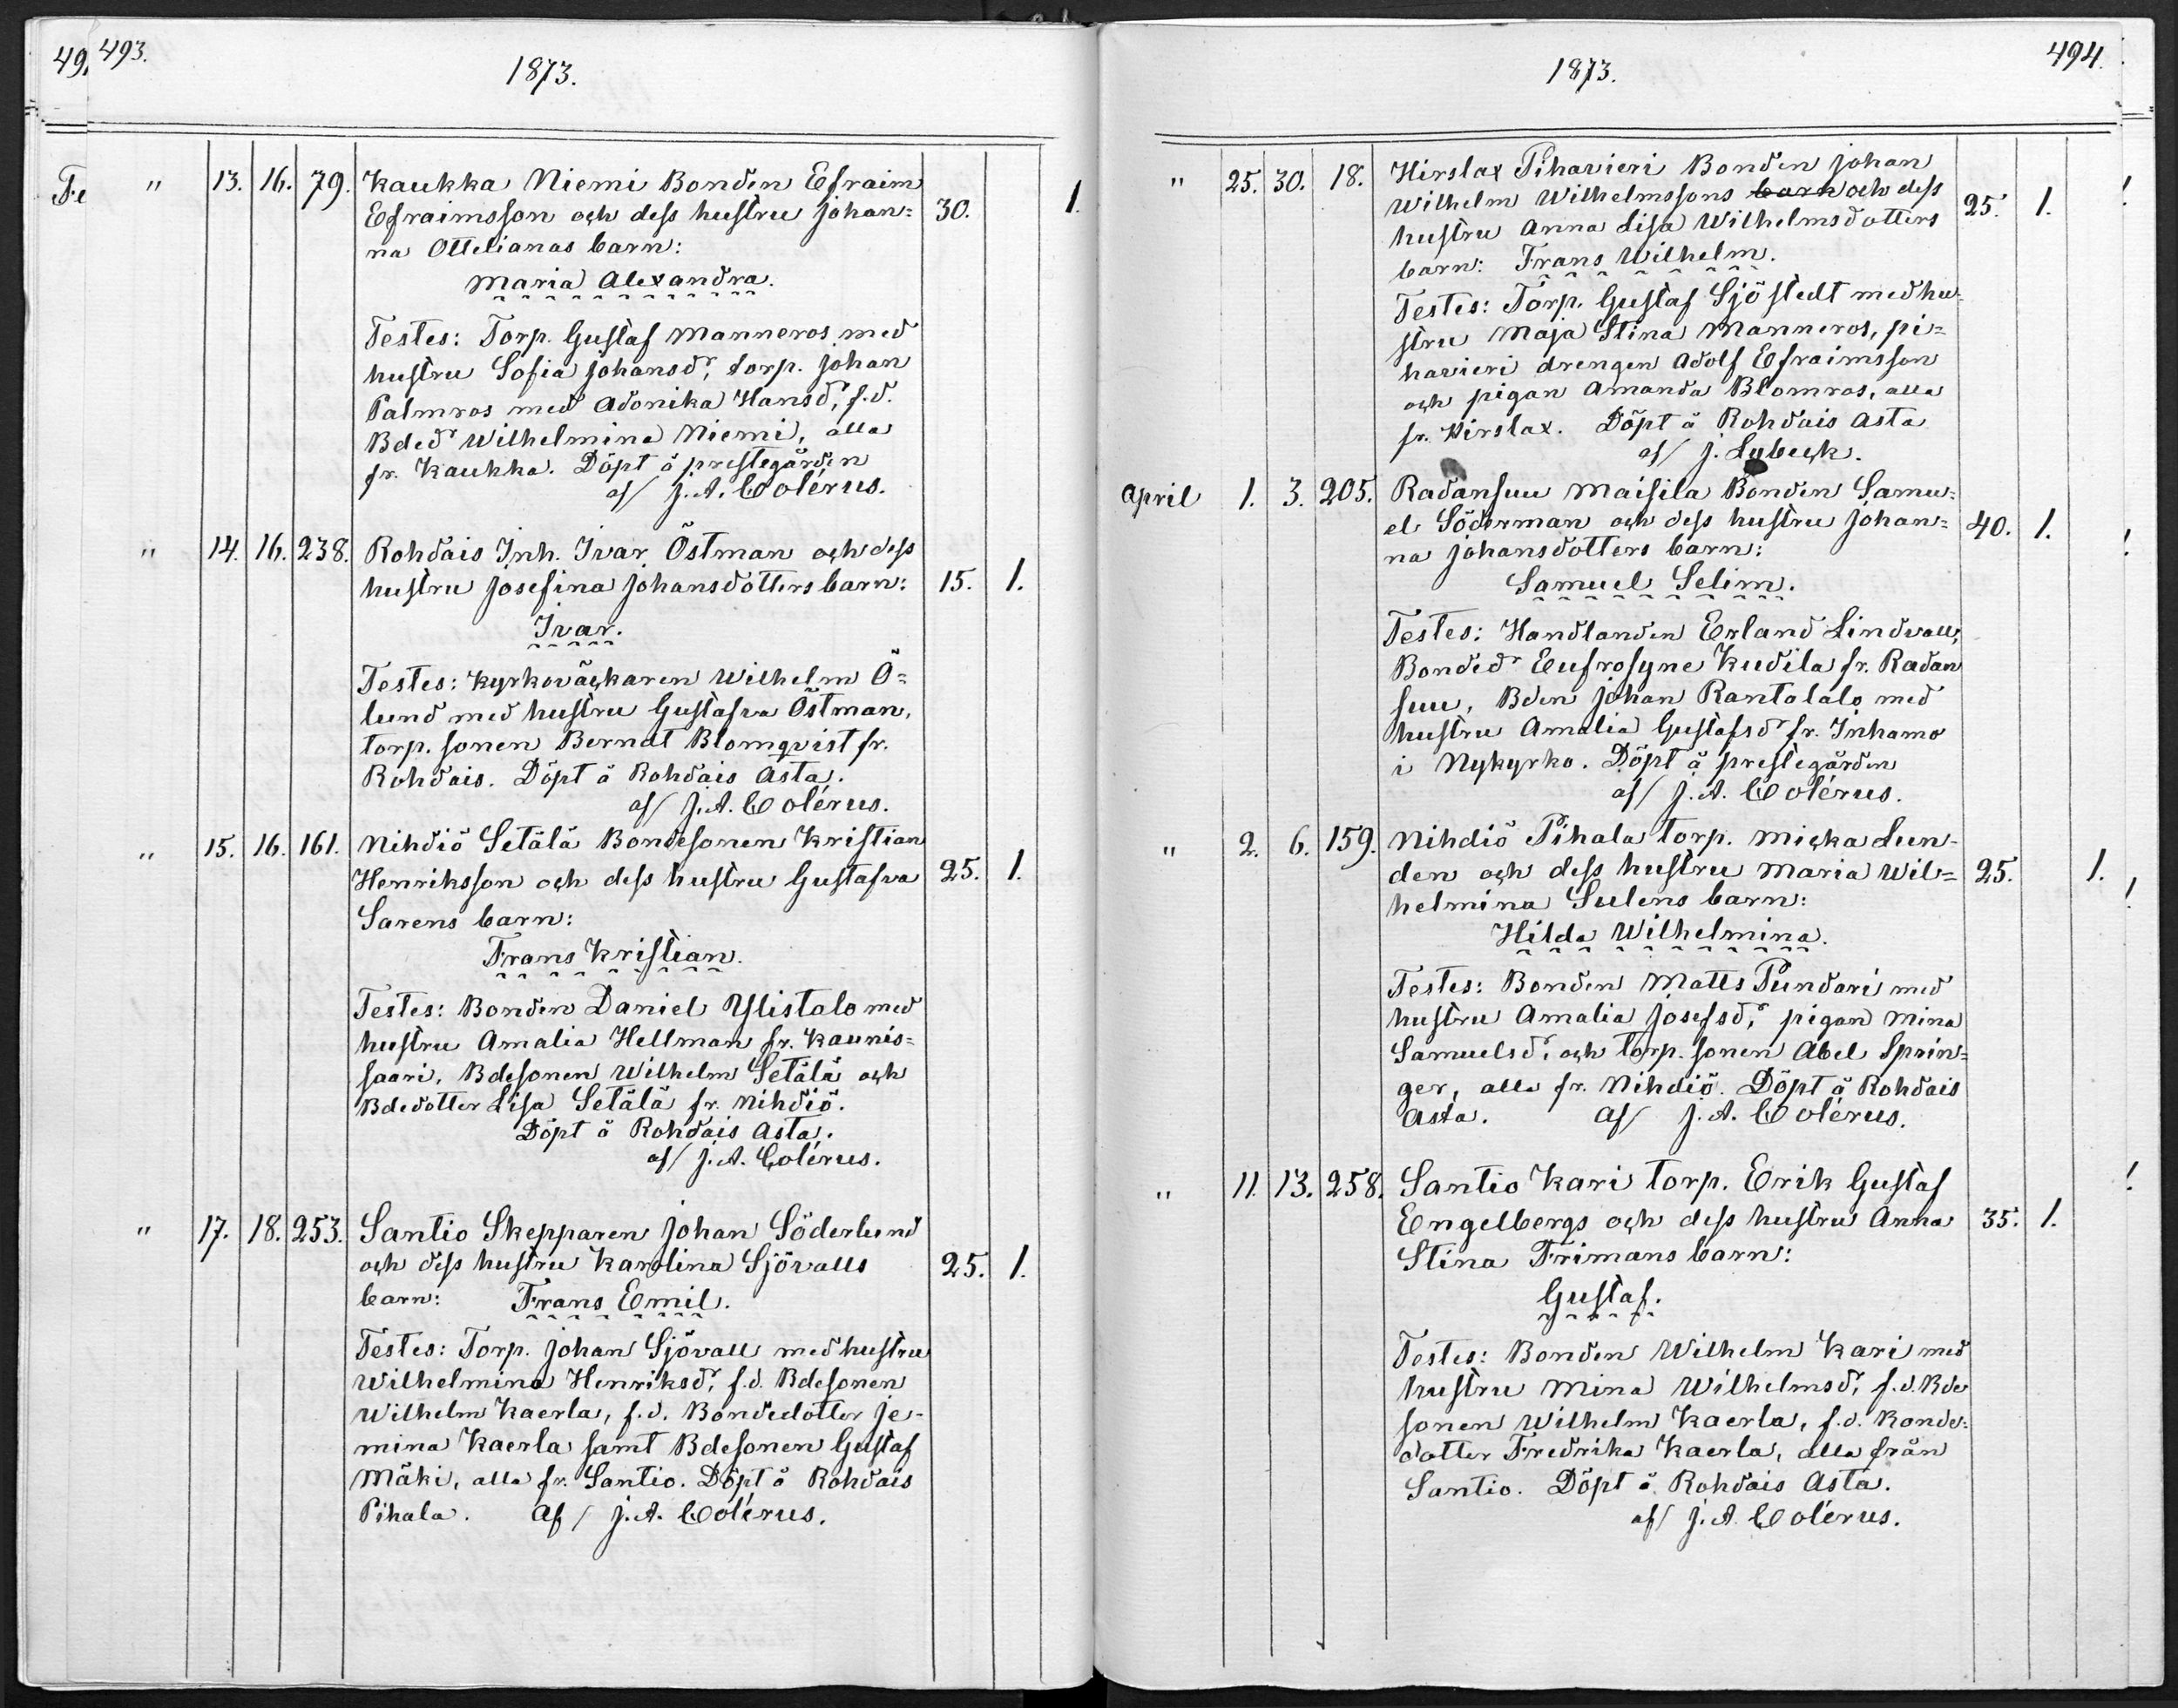 49. 493.
1873.
Fe
" 13. 16. 79. Kaukka Niemi Bonden Efraim
Efraimsson och dess hustru Johan= 30. 1.
na Ottelianas barn:
Maria Alexandra.
Testes: Torp. Gustaf Manneros med
hustru Sofia Johansdr, torp. Johan
Palmros med Adonika Hansd, f.d.
Bdedr Wilhelmina Niemi, alla
fr. Kaukka. Döpt å prestegården
af/ J. A. Colérus.
" 14. 16. 238. Rohdais Inh. Ivar Östman och dess
hustru Josefina Johansdotters barn: 15. 1.
Ivar.
Testes: Kyrkoväckaren Wilhelm Ö=
lund med hustru Gustafva Östman,
torp. sonen Berndt Blomqvist fr.
Rohdais. Döpt å Rohdais Asta.
af/ J. A. Colérus.
" 15. 16. 161. Nihdiö Setälä Bondesonen Kristian
Henriksson och dess hustru Gustafva 25. 1.
Sarens barn:
Frans Kristian.
Testes: Bonden Daniel Ylistalo med
hustru Amalia Hellman fr. Kaunis=
saari, Bdesonen Wilhelm Setälä och
Bdedotter Lisa Setälä fr. Nihdiö.
Döpt å Rohdais Asta.
af/ J. A. Colérus.
" 17. 18. 253. Santio Skepparen Johan Söderlund
och dess hustru Karolina Sjövalls 25. 1.
barn: Frans Emil.
Testes: Torp. Johan Sjövall med hustru
Wilhelmina Henriksdr, f.d. Bdesonen
Wilhelm Kaerla, f.d. Bondedotter Je=
mina Kaerla samt Bdesonen Gustaf
Mäki, alla fr. Santio. Döpt å Rohdais
Pihala. Af/ J. A. Colérus.
494.
1873.
" 25. 30. 18. Hirslax Pihavieri Bonden Johan
Wilhelm Wilhelmssons barn och dess 25. 1.
hustru Anna Lisa Wilhelmsdotters
barn: Frans Wilhelm.
Testes: Torp. Gustaf Sjöstedt med hu=
stru Maja Stina Manneros, pi=
havieri drengen Adolf Efraimsson
och pigan Amanda Blomros, alla
fr. Hirslax. Döpt å Rohdais Asta
af/ J. Lybeck.
April 1. 3. 205. Radansuu Maisila Bonden Samu=
el Söderman och dess hustru Johan= 40. 1.
na Johansdotters barn:
Samuel Selim.
Testes: Handlanden Erland Lindvall,
Bondedr Eufrosyne Kudila fr. Radan
suu, Bden Johan Rantalalo med
hustru Amalia Gustafsdr fr. Inhamo
i Nykyrko. Döpt å prestegården
af/ J. A. Colérus.
" 2. 6. 159. Nihdiö Pihala torp. Micka Lun=
den och dess hustru Maria Wil= 25. 1.
helmina Sulens barn:
Hilda Wilhelmina.
Testes: Bonden Matts Pundari med
hustru Amalia Josefsdr, pigan Mina
Samuelsdr och torp. sonen Abel Sprin=
ger, alla fr. Nihdiö. Döpt å Rohdais
Asta. Af/ J. A. Colérus.
" 11. 13. 258. Santio Kari torp. Erik Gustaf
Engelbergs och dess hustru Anna 35. 1.
Stina Frimans barn:
Gustaf.
Testes: Bonden Wilhelm Kari med
hustru Mina Wilhelmsdr, f.d. Bde
sonen Wilhelm Kaerla, f.d. Bonde=
dotter Fredrika Kaerla, alla från
Santio. Döpt å Rohdais Asta.
af/ J. A. Colérus.